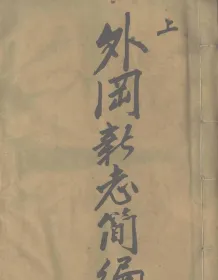 上
外岡新志简编